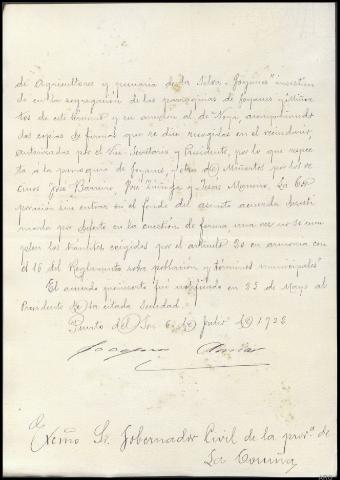 de Agricultores y pecuaria de la Silva-Goyanes" insistien
do en la segregación de las parroquias de Goyanes y Miñor
tos de este término y su anexión al de Noya, acompañando
dos copias de firmas que se dice recogidas en el vecindario,
autorizadas por el Vice Secretario y Presidente, por lo que respec
ta a la parroquia de Goyanes, y otra de Miñortos por los ve
cinos José Barreiro, José Zúñiga y Jesús Moreno. La Cor
poración sin entrar en el fondo del asunto acuerda desesti
marla por defecto en la cuestión de forma una vez no se cum
plen los trámites exigidos por el artículo 20 en armonía con
el 16 del Reglamento sobre población y términos municipales"
El acuerdo preinserto fué notificado en 25 de Mayo al
Presidente de la citada Sociedad.
Puerto del Son 6 de Julio de 1928
Joaquín
Excmo Sr. Gobernador Civil de la provª de
La Coruña